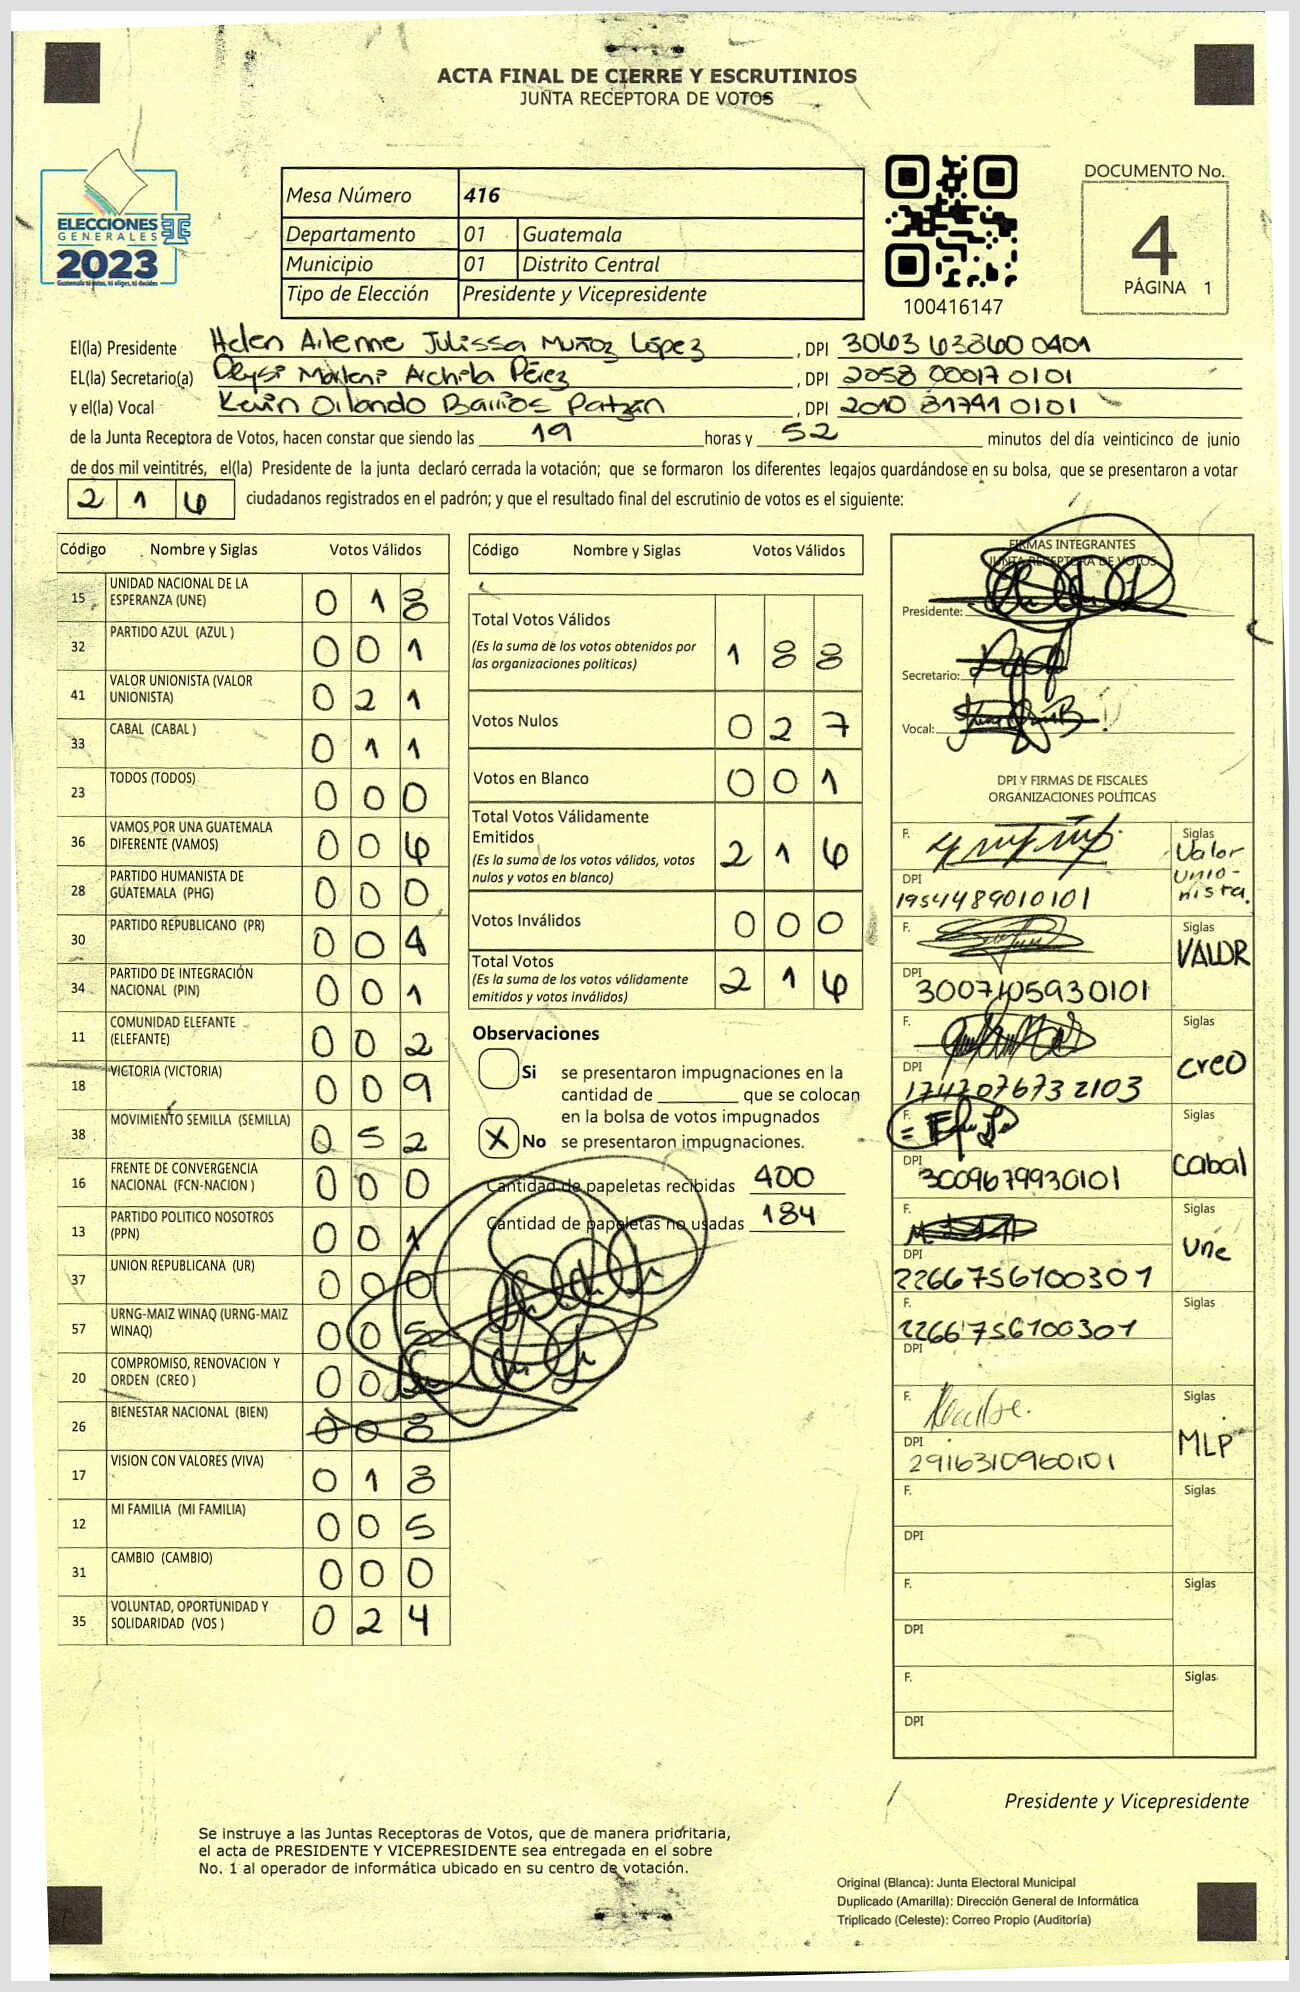 ACTA FINAL DE CIERRE Y ESCRUTINIOS
JUNTA RECEPTORA DE VOTOS
ELECCIONES
GENERALES
2023
Guatemala tú votas, tú eliges, tú decides
Mesa Número 416
Departamento 01 Guatemala
Municipio 01 Distrito Central
Tipo de Elección Presidente y Vicepresidente
100416147
DOCUMENTO No.
4
PÁGINA 1
El(la) Presidente Helen Ailenne Julissa Muñoz López, DPI 3063 63860 0401
EL(la) Secretario(a) Deysi Marleni Archila Pérez, DPI 2058 00017 0101
y el(la) Vocal Kevin Orlando Barrios Patzán, DPI 2010 81791 0101
de la Junta Receptora de Votos, hacen constar que siendo las 19 horas y 52 minutos del día veinticinco de junio
de dos mil veintitrés, el(la) Presidente de la junta declaró cerrada la votación; que se formaron los diferentes legajos guardándose en su bolsa, que se presentaron a votar
2 1 6 ciudadanos registrados en el padrón; y que el resultado final del escrutinio de votos es el siguiente:
Código Nombre y Siglas Votos Válidos
15 UNIDAD NACIONAL DE LA ESPERANZA (UNE) 0 1 8
32 PARTIDO AZUL (AZUL ) 0 0 1
41 VALOR UNIONISTA (VALOR UNIONISTA) 0 2 1
33 CABAL (CABAL ) 0 1 1
23 TODOS (TODOS) 0 0 0
36 VAMOS POR UNA GUATEMALA DIFERENTE (VAMOS) 0 0 6
28 PARTIDO HUMANISTA DE GUATEMALA (PHG) 0 0 0
30 PARTIDO REPUBLICANO (PR) 0 0 4
34 PARTIDO DE INTEGRACIÓN NACIONAL (PIN) 0 0 1
11 COMUNIDAD ELEFANTE (ELEFANTE) 0 0 2
18 VICTORIA (VICTORIA) 0 0 9
38 MOVIMIENTO SEMILLA (SEMILLA) 0 5 2
16 FRENTE DE CONVERGENCIA NACIONAL (FCN-NACION ) 0 0 0
13 PARTIDO POLITICO NOSOTROS (PPN) 0 0 1
37 UNION REPUBLICANA (UR) 0 0 0
57 URNG-MAIZ WINAQ (URNG-MAIZ WINAQ) 0 0 5
20 COMPROMISO, RENOVACION Y ORDEN (CREO ) 0 0
26 BIENESTAR NACIONAL (BIEN) 0 0 8
17 VISION CON VALORES (VIVA) 0 1 8
12 MI FAMILIA (MI FAMILIA) 0 0 5
31 CAMBIO (CAMBIO) 0 0 0
35 VOLUNTAD, OPORTUNIDAD Y SOLIDARIDAD (VOS ) 0 2 4
Código Nombre y Siglas Votos Válidos
Total Votos Válidos 1 8 8
(Es la suma de los votos obtenidos por
las organizaciones políticas)
Votos Nulos 0 2 7
Votos en Blanco 0 0 1
Total Votos Válidamente
Emitidos 2 1 6
(Es la suma de los votos válidos, votos
nulos y votos en blanco)
Votos Inválidos 0 0 0
Total Votos 2 1 6
(Es la suma de los votos válidamente
emitidos y votos inválidos)
Observaciones
Si se presentaron impugnaciones en la
cantidad de ________ que se colocan
en la bolsa de votos impugnados
X No se presentaron impugnaciones.
Cantidad de papeletas recibidas 400
Cantidad de papeletas no usadas 184
FIRMAS INTEGRANTES
JUNTA RECEPTORA DE VOTOS
Presidente:
Secretario:
Vocal:
DPI Y FIRMAS DE FISCALES
ORGANIZACIONES POLÍTICAS
F. Siglas Valor Unio-nista.
DPI 1954489010101
F. Siglas VALOR
DPI 3007105930101
F. Siglas creo
DPI 1747076732103
F. Siglas Cabal
DPI 3009679930101
F. Siglas Une
DPI 2266756100301
F. 2266756100301 Siglas
DPI
F. Siglas MLP
DPI 2916310960101
F. Siglas
DPI
F. Siglas
DPI
F. Siglas
DPI
Presidente y Vicepresidente
Se instruye a las Juntas Receptoras de Votos, que de manera prioritaria,
el acta de PRESIDENTE Y VICEPRESIDENTE sea entregada en el sobre
No. 1 al operador de informática ubicado en su centro de votación.
Original (Blanca): Junta Electoral Municipal
Duplicado (Amarilla): Dirección General de Informática
Triplicado (Celeste): Correo Propio (Auditoría)